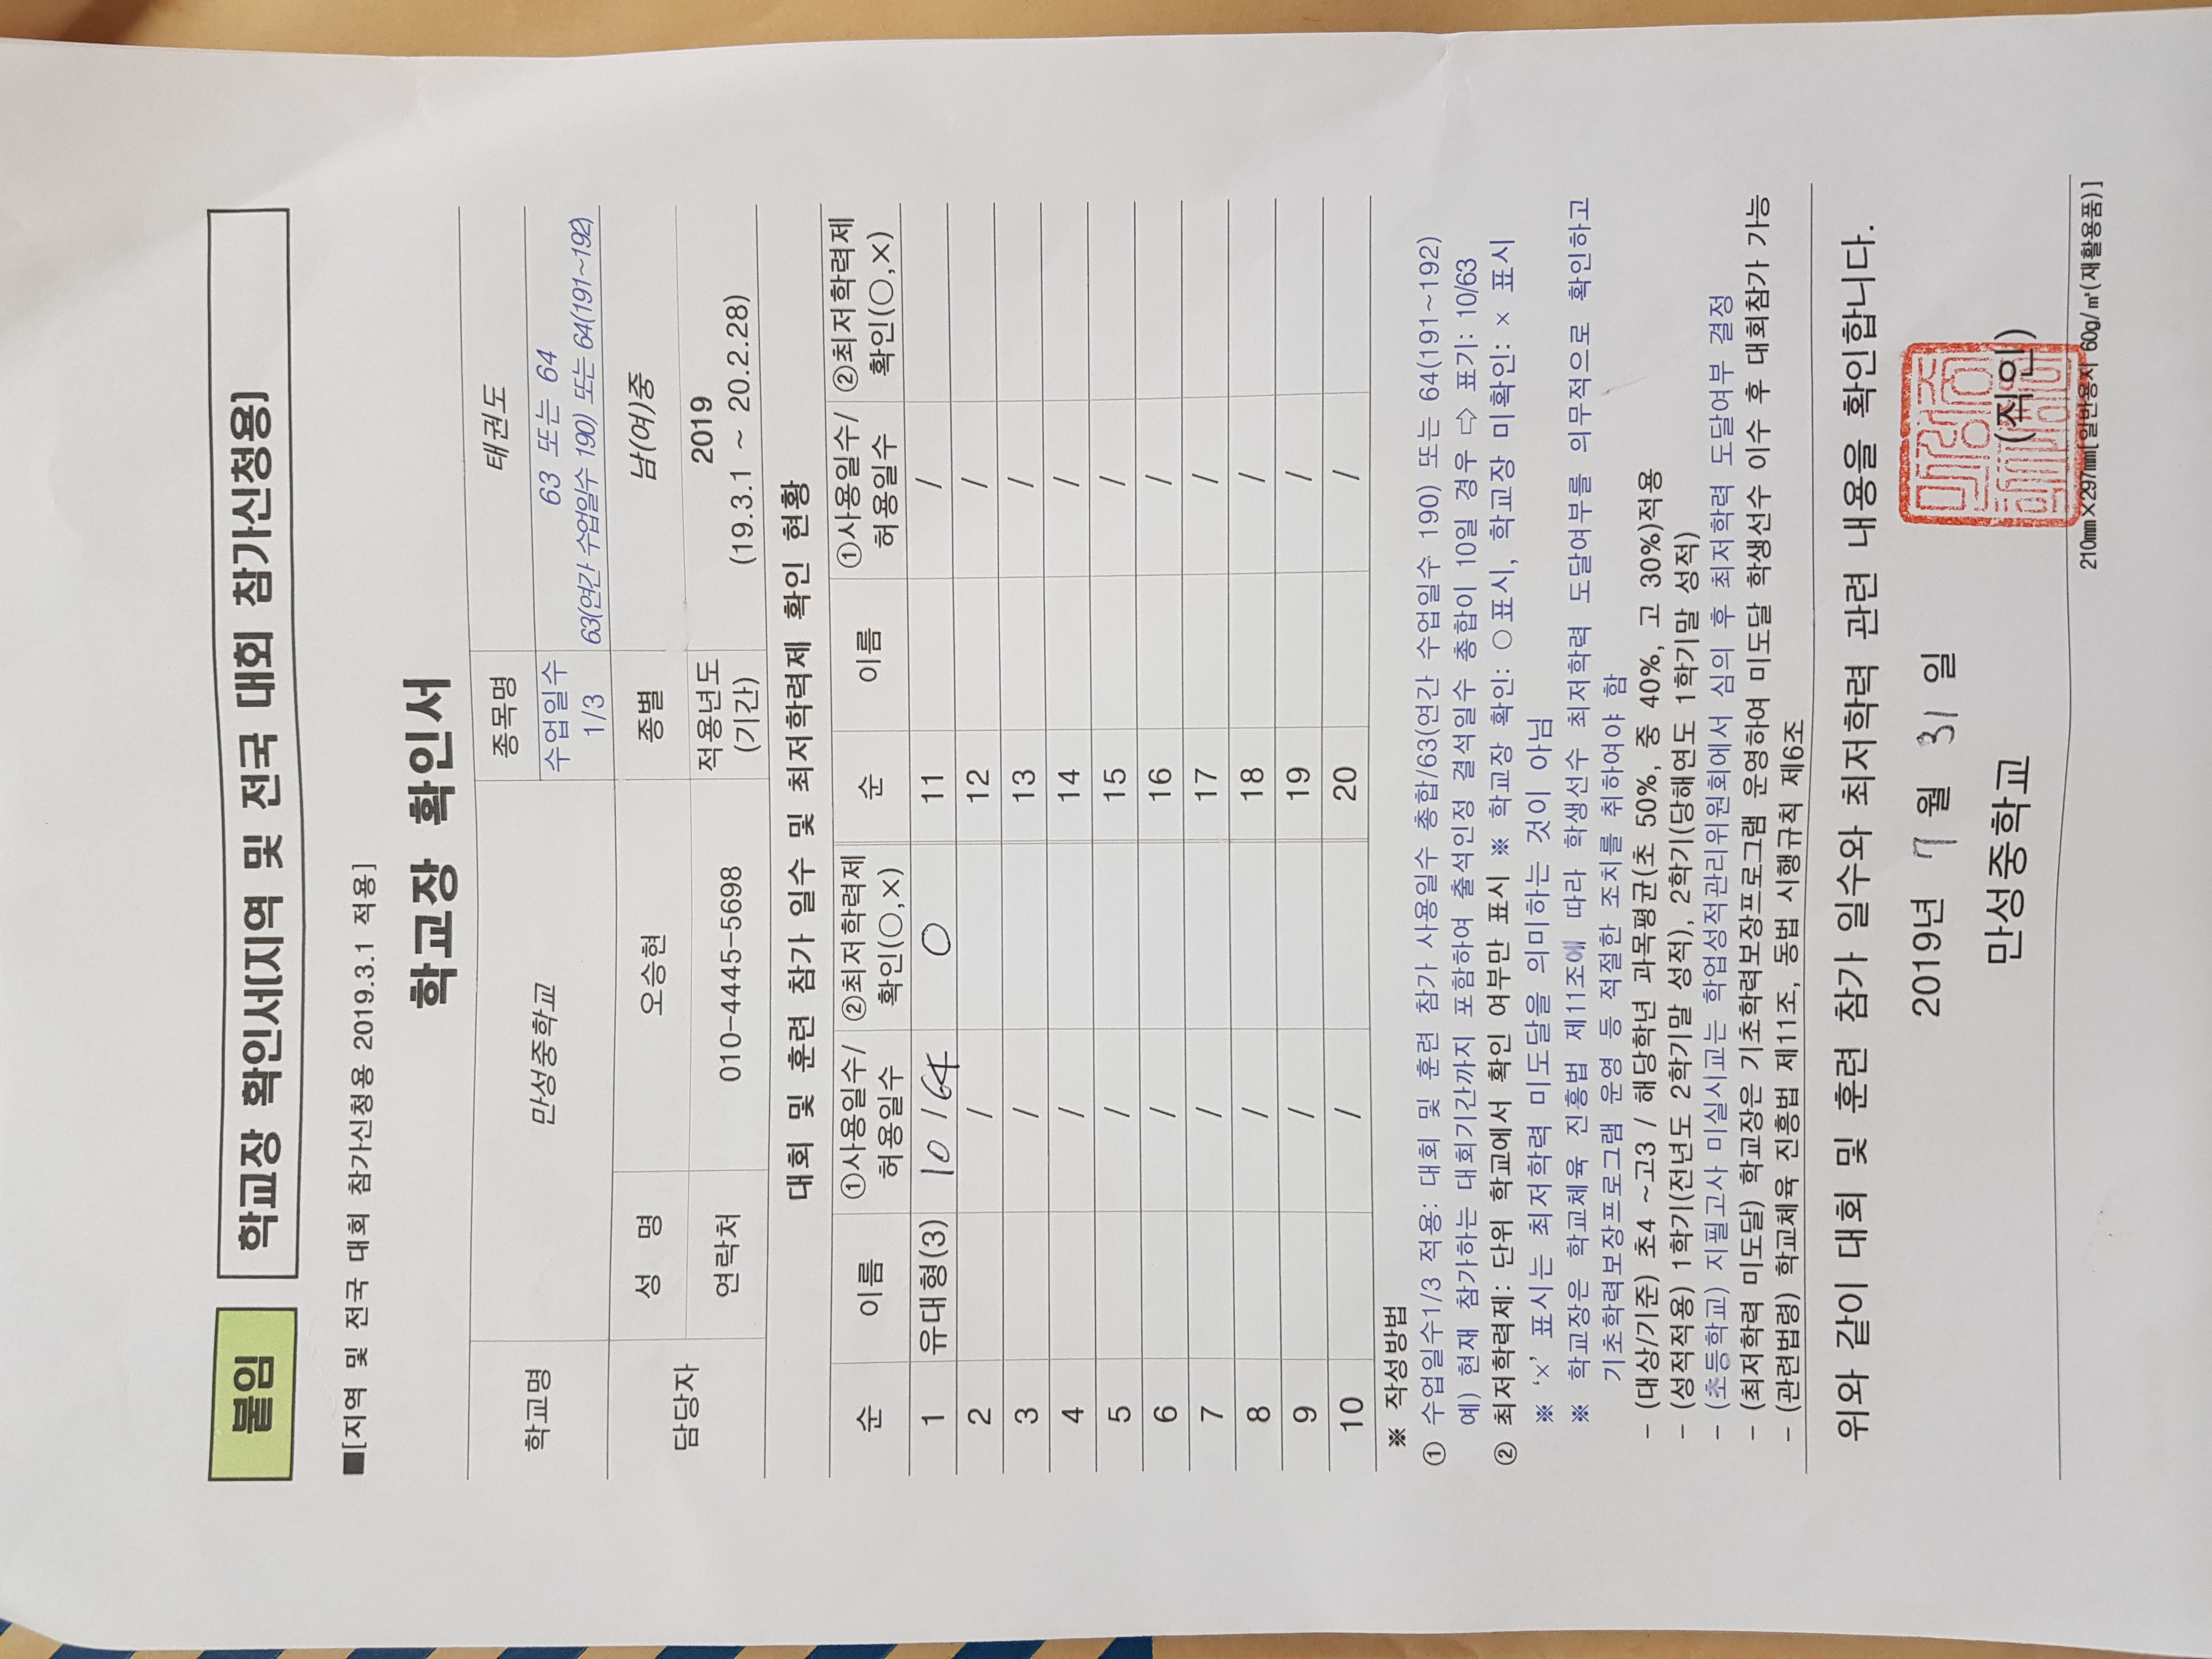 붙임
학교장 확인서(지역 및 전국 대회 참가신청용)
■[지역 및 전국 대회 참가신청용 2019.3.1 적용]
학교장 확인서
학교명 만성중학교 종목명 태권도
수업일수 1/3 63 또는 64
63(연간 수업일수 190) 또는 64(191~192)
담당자 성 명 오승현 종별 남(여)중
연락처 010-4445-5698 적용년도 (기간) 2019
(19.3.1 ~ 20.2.28)
대회 및 훈련 참가 일수 및 최저학력제 확인 현황
순 이름 ①사용일수/허용일수 ②최저학력제 확인(○,×) 순 이름 ①사용일수/허용일수 ②최저학력제 확인(○,×)
1 유대형(3) 10 / 64 ○ 11 /
2 / 12 /
3 / 13 /
4 / 14 /
5 / 15 /
6 / 16 /
7 / 17 /
8 / 18 /
9 / 19 /
10 / 20 /
※ 작성방법
① 수업일수1/3 적용: 대회 및 훈련 참가 사용일수 총합/63(연간 수업일수 190) 또는 64(191~192)
예) 현재 참가하는 대회기간까지 포함하여 출석인정 결석일수 총합이 10일 경우 ⇨ 표기: 10/63
② 최저학력제: 단위 학교에서 확인 여부만 표시 ※ 학교장 확인: ○표시, 학교장 미확인: × 표시
※ '×' 표시는 최저학력 미도달을 의미하는 것이 아님
※ 학교장은 학교체육 진흥법 제11조에 따라 학생선수 최저학력 도달여부를 의무적으로 확인하고
기초학력보장프로그램 운영 등 적절한 조치를 취하여야 함
- (대상/기준) 초4 ~고3 / 해당학년 과목평균(초 50%, 중 40%, 고 30%)적용
- (성적적용) 1학기(전년도 2학기말 성적), 2학기(당해연도 1학기말 성적)
- (초등학교) 지필고사 미실시교는 학업성적관리위원회에서 심의 후 최저학력 도달여부 결정
- (최저학력 미도달) 학교장은 기초학력보장프로그램 운영하여 미도달 학생선수 이수 후 대회참가 가능
- (관련법령) 학교체육 진흥법 제11조, 동법 시행규칙 제6조
위와 같이 대회 및 훈련 참가 일수와 최저학력 관련 내용을 확인합니다.
2019년 7 월 31 일
만성중학교 (직인)
210㎜×297㎜[일반용지 60g/㎡(재활용품)]